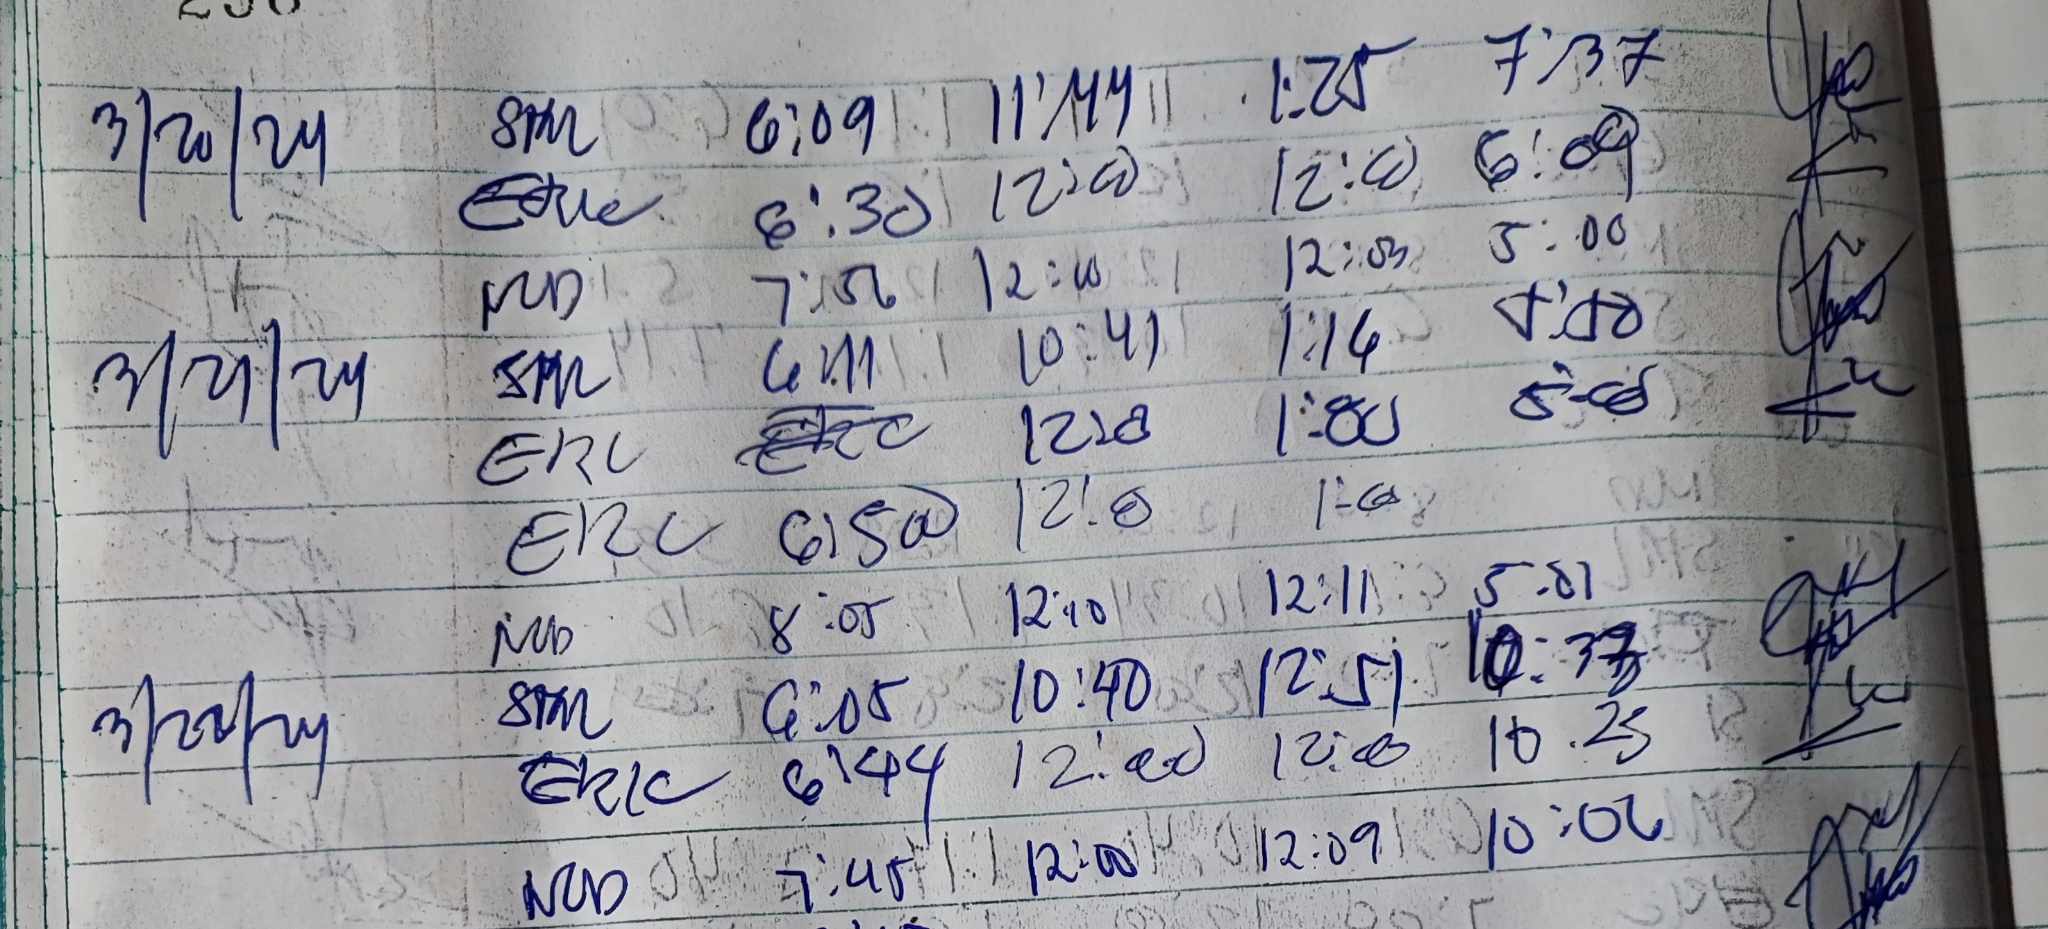 3/20/24 SML 6:09 11:44 1:25 7:37
ERIC 6:30 12:00 12:00 5:00
NUD 7:56 12:10 12:03 5:00
3/21/24 SML 6:11 10:41 1:14
ERC ERC 12:0 1:00
ERC 6:50 12:0 1:0
NUD 8:05 12:10 12:11 5:01
3/22/24 SML 6:05 10:40 12:51
ERIC 6:44 12:00 12:00 10.25
NUD 7:45 12:00 12:09 10:06